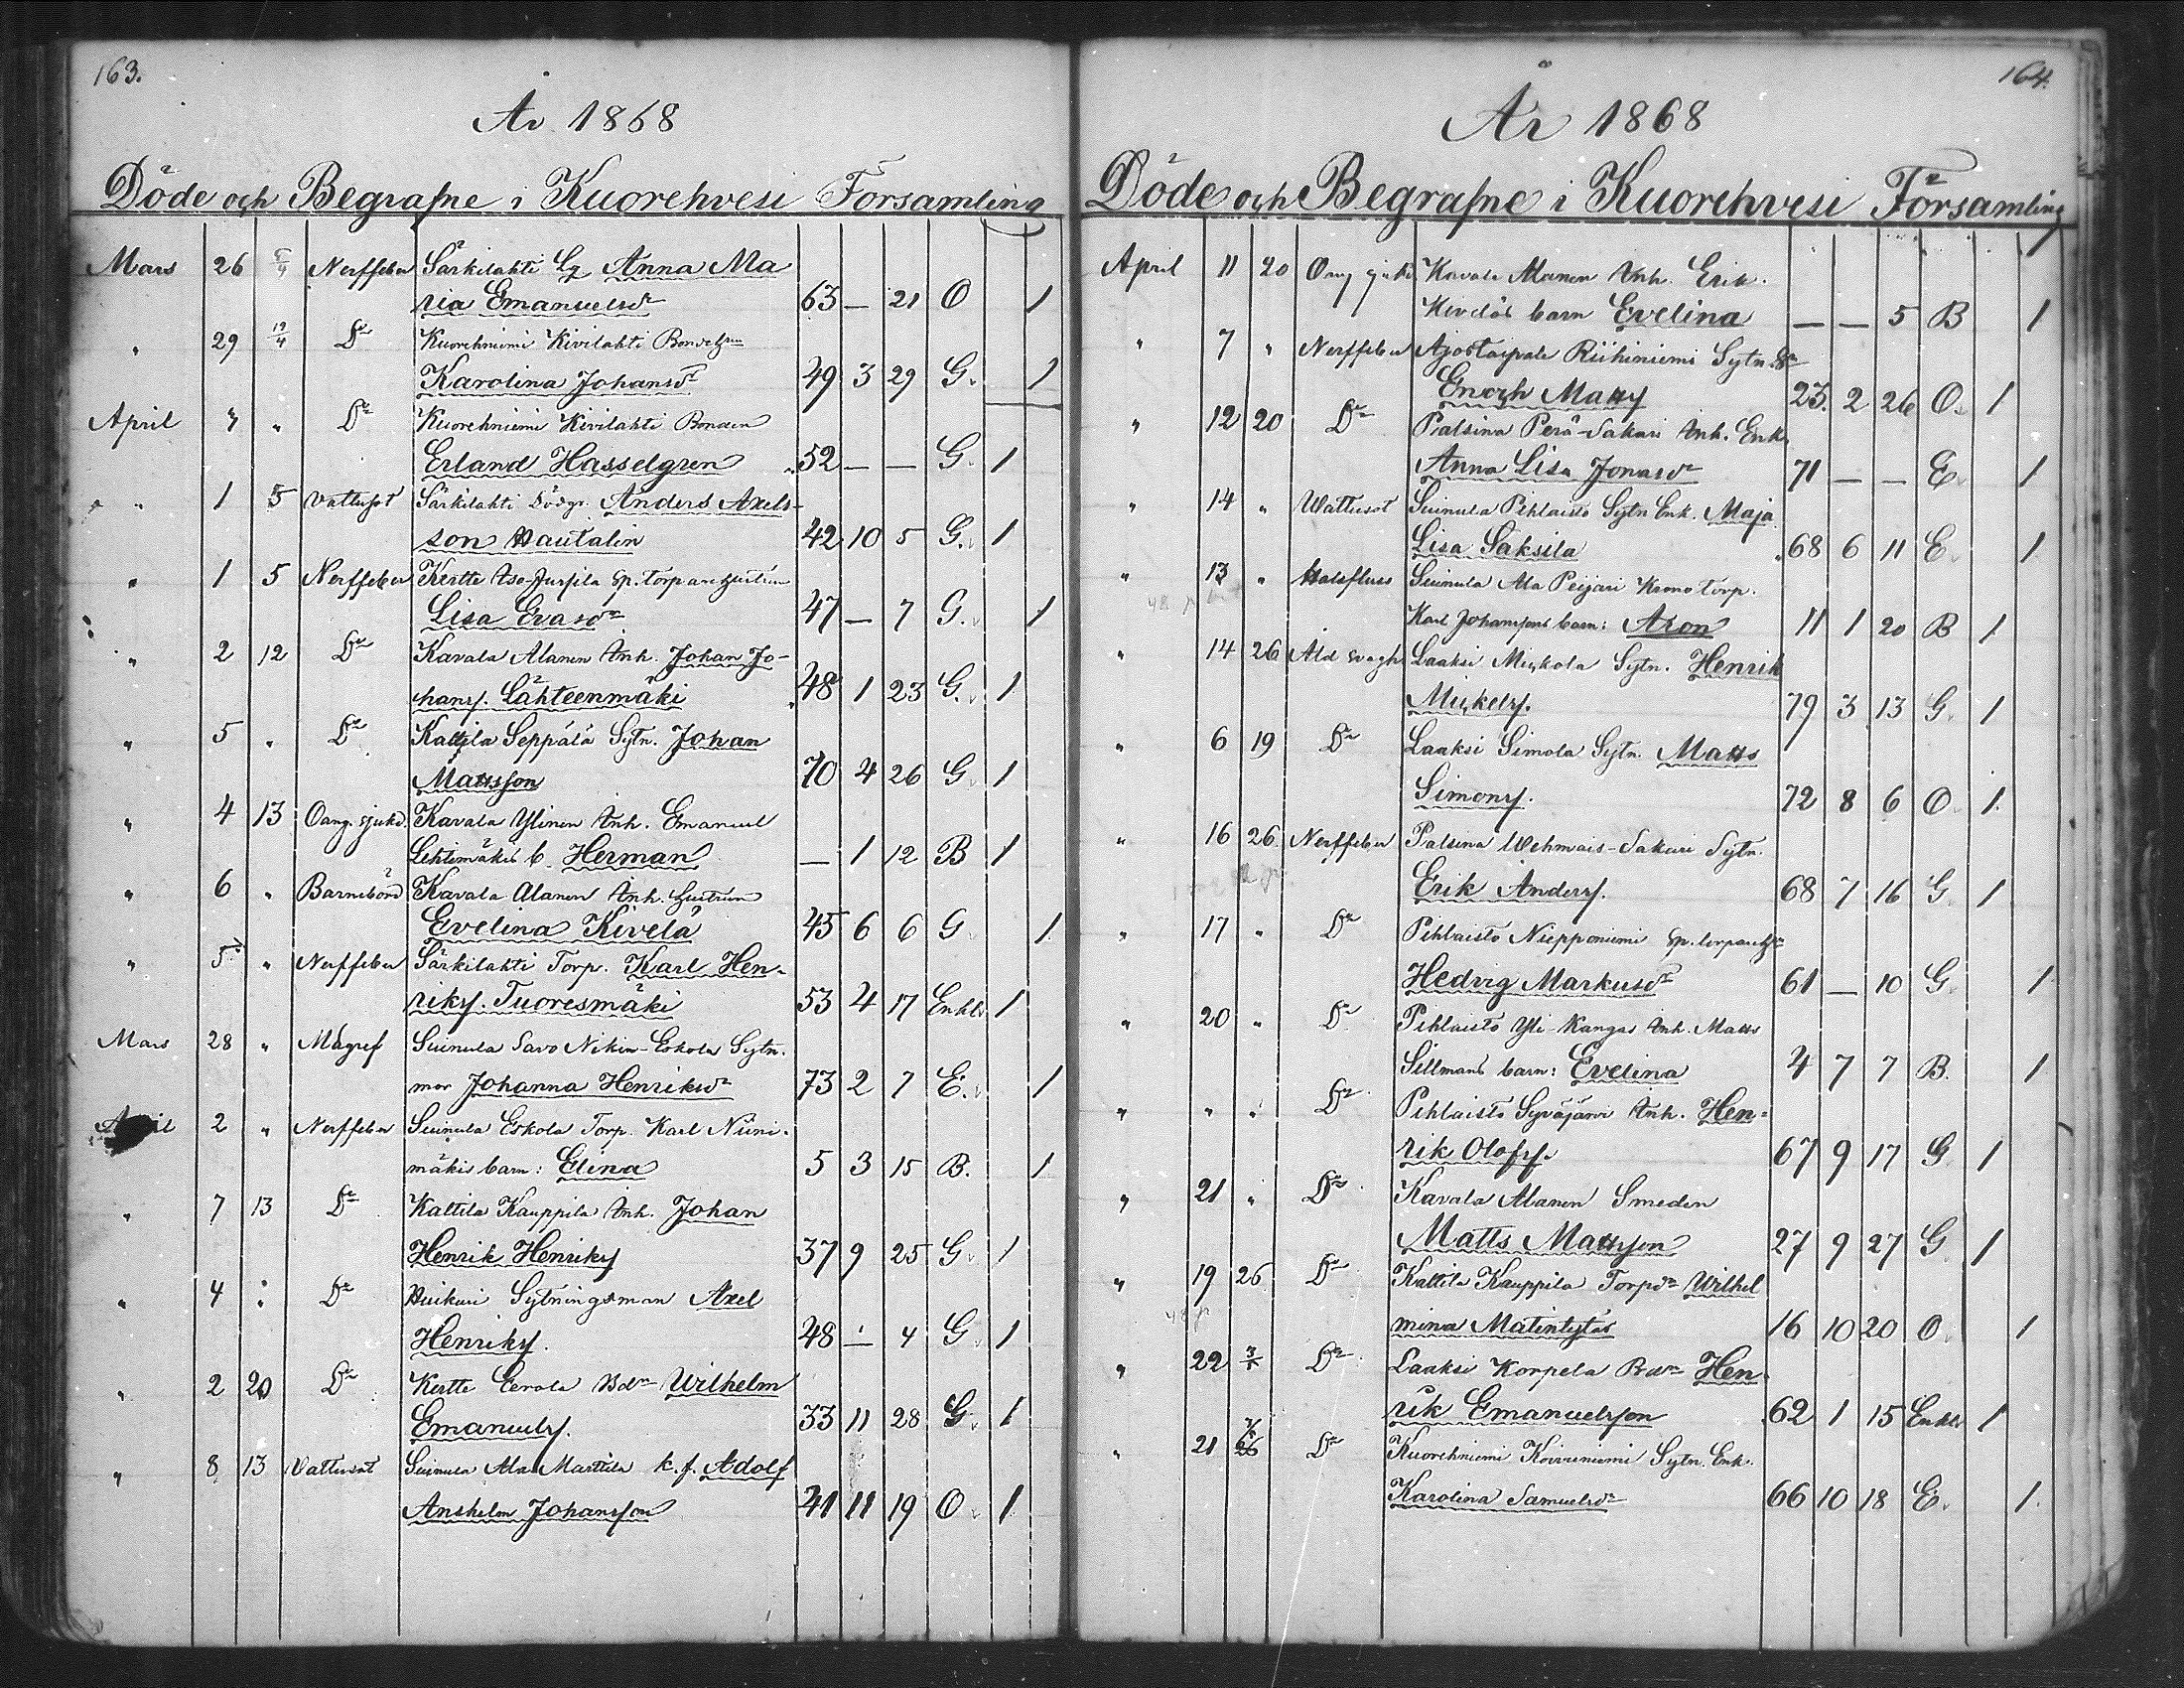 163.
År 1868
Döde och Begrafne i Kuorehvesi Församling
Mars 26 5/4 Nerffeber Särkilahti Anna Ma
ria Emanuelsdr 63 — 21 O 1
" 29 12/4 Do Kuorehniemi Kivilahti
Karolina Johansdr 49 3 29 G. 1
April " Do Kuorehniemi Kivilahti Bonden
Erland Hasselgren 52 — — G. 1
" 1 5 Vattusot Särkilahti Anders Axels-
son Hautalin 42 10 5 G. 1
" 1 5 Nerffeber Kertte Iso-Jussila Sp. torpare hustrun
Lisa Evasdr 47 — 7 G. 1
" 2 12 Do Kavala Alanen Inh. Johan Jo-
hanss. Lähteenmäki 48 1 23 G. 1
" 5 " Do Kattila Seppälä Sytn. Johan
Mattsson 70 4 26 G. 1
" 4 13 Oang. sjukd. Kavala Ylinen Inh. Emanuel
Lehtimäkis b. Herman — 1 12 B 1
" 6 " Barnsbörd Kavala Alanen Inh. hustrun
Evelina Kivelä 45 6 6 G 1
" 5 " Nerffeber Särkilahti Torp. Karl Hen-
rikss. Tuoresmäki 53 4 17 Enkl. 1
Mars 28 " Magref Suinula Savo Nikin-Eskola Sytn.
mor Johanna Henriksdr 73 2 7 E. 1
April 2 " Nerffeber Suinula Eskola Torp. Karl Niini-
mäkis barn: Elina 5 3 15 B. 1
" 7 13 Do Kattila Kauppila Inh. Johan
Henrik Henrikss 37 9 25 G. 1
" 4 " Do Huikuri Sytningsman Axel
Henrikss. 48 — 4 G 1
" 2 20 Do Kertte Eerola Wilhelm
Emanuelss. 33 11 28 G 1
" 8 13 Vattusot Suinula Ala Marttila k.f. Adolf
Anshelm Johansson 41 11 19 O 1
164.
År 1868
Döde och Begrafne i Kuorehvesi Församling
April 11 20 Oang sjukd. Kavala Alanen Inh. Erik
Kiveläs barn Evelina — — 5 B 1
" 7 " Nerffeber Ajostaipale Riihiniemi Sytn.
Enoch Matts 23. 2 26 O. 1
" 12 20 Do Palsina Perä-Sakari Inh. Enk.
Anna Lisa Jonasdr 71 — — E 1
" 14 " Wattusot Suinula Pihlaisto Sytn Enk. Maja
Lisa Saksila 68 6 11 E 1
" 13 " Halsfluss Suinula Ala Peijari Krono torp.
Karl Johanssons barn: Aron 11 1 20 B 1
" 14 26 Ald. svagh Laaksi Mickola Sytn. Henrik
Mickelss. 79 3 13 G. 1
" 6 19 Do Laaksi Simola Sytn. Matts
Simonss. 72 8 6 O. 1.
" 16 26 Nerffeber Palsina Wehmais-Sakari Sytn.
Erik Anderss. 68 7 16 G 1
" 17 " Do Pihlaisto Niepponiemi Sp.
Hedvig Markusdr 61 — 10 G 1
" 20 " Do Pihlaisto Yli-Kangas Inh. Matts
Sillmans barn: Evelina 4 7 7 B. 1
" " " Do Pihlaisto Syväjärvi Inh. Hen-
rik Olofss. 67 9 17 G 1
" 21 " Do Kavala Alanen Smeden
Matts Mattsson 27 9 27 G 1
" 19 26 Do Kattila Kauppila Torpdr Wilhel
mina Matintytär 16 10 20 O 1
" 22 Do Laaksi Korpela Hen
rik Emanuelsson 62 1 15 Enkl. 1
" 21 Do Kuorehniemi Koivuniemi Sytn. Enk.
Karolina Samuelsdr 66 10 18 E. 1.